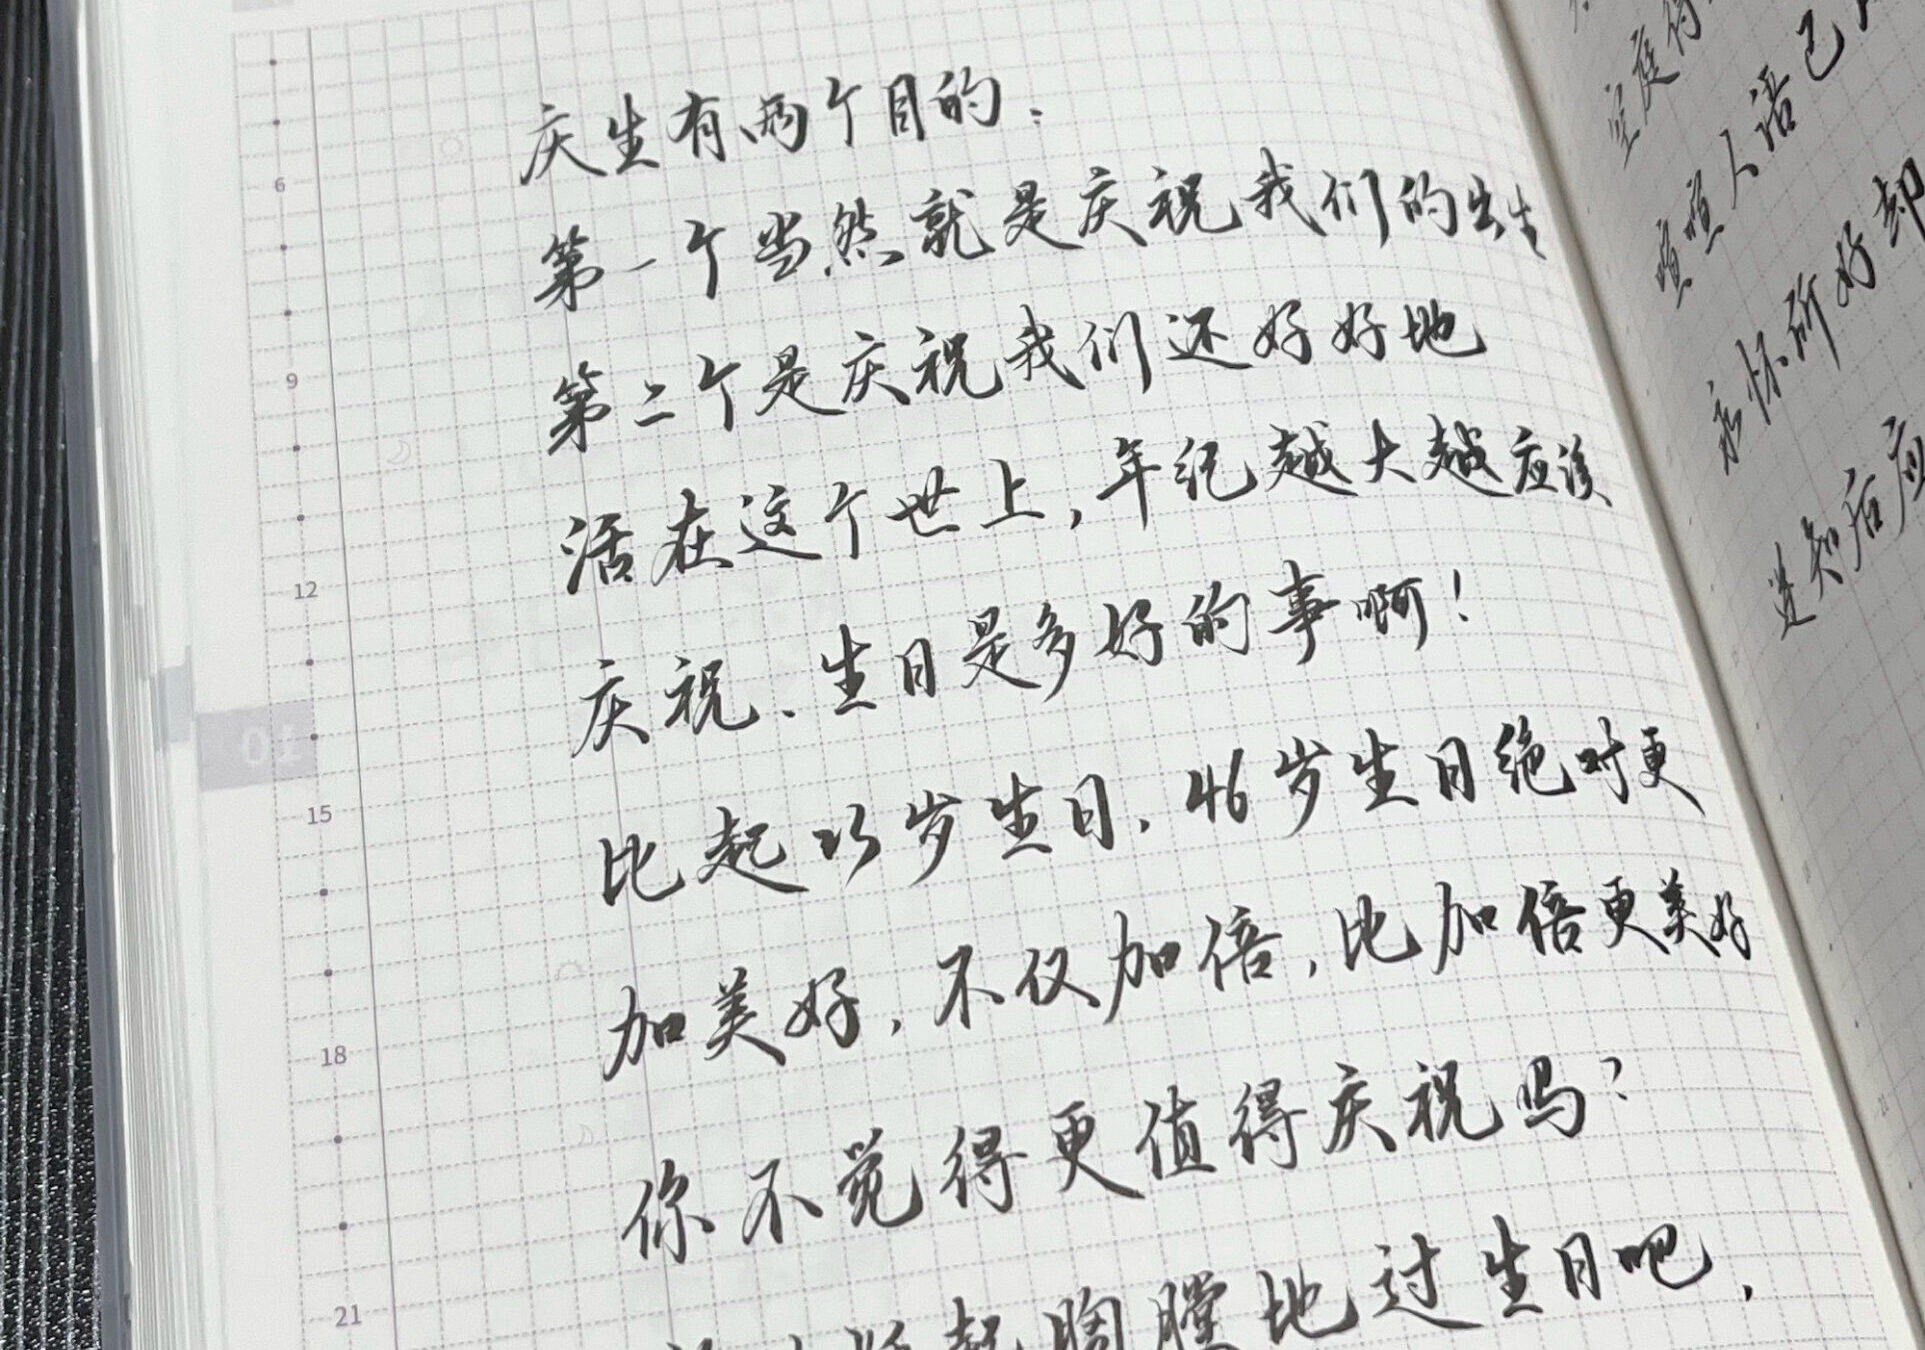 庆生有两个目的：
第一个当然就是庆祝我们的出生
第二个是庆祝我们还好好地
活在这个世上，年纪越大越应该
庆祝、生日是多好的事啊！
比起23岁生日，46岁生日绝对更
加美好，不仅加倍，比加倍更美好
你不觉得更值得庆祝吗？
起胸膛地过生日吧，
6
9
12
01
15
18
21
空庭得
喧喧人语已
永怀所好却
送知后应